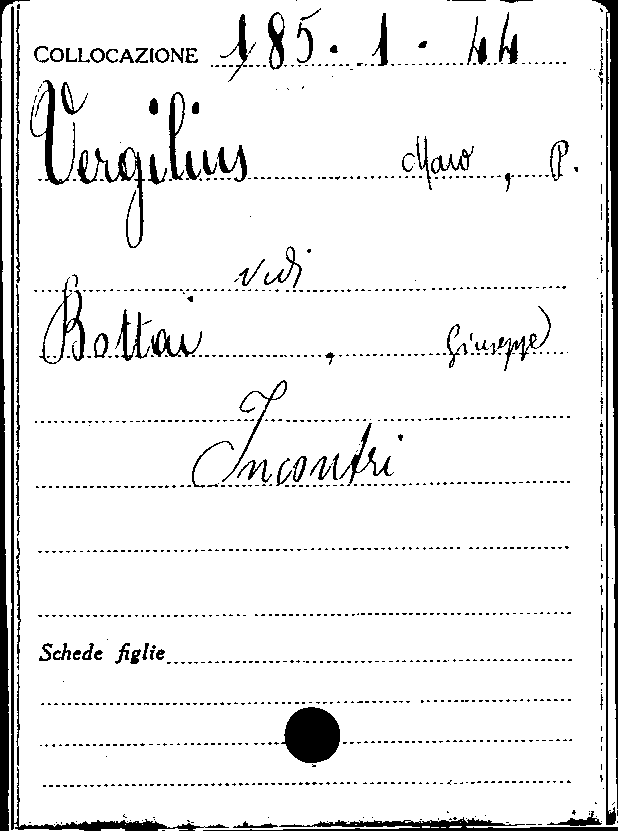 COLLOCAZIONE 185.1.44
Vergilius Maro, P.
vedi
Bottai, Giuseppe
Incontri
Schede figlie